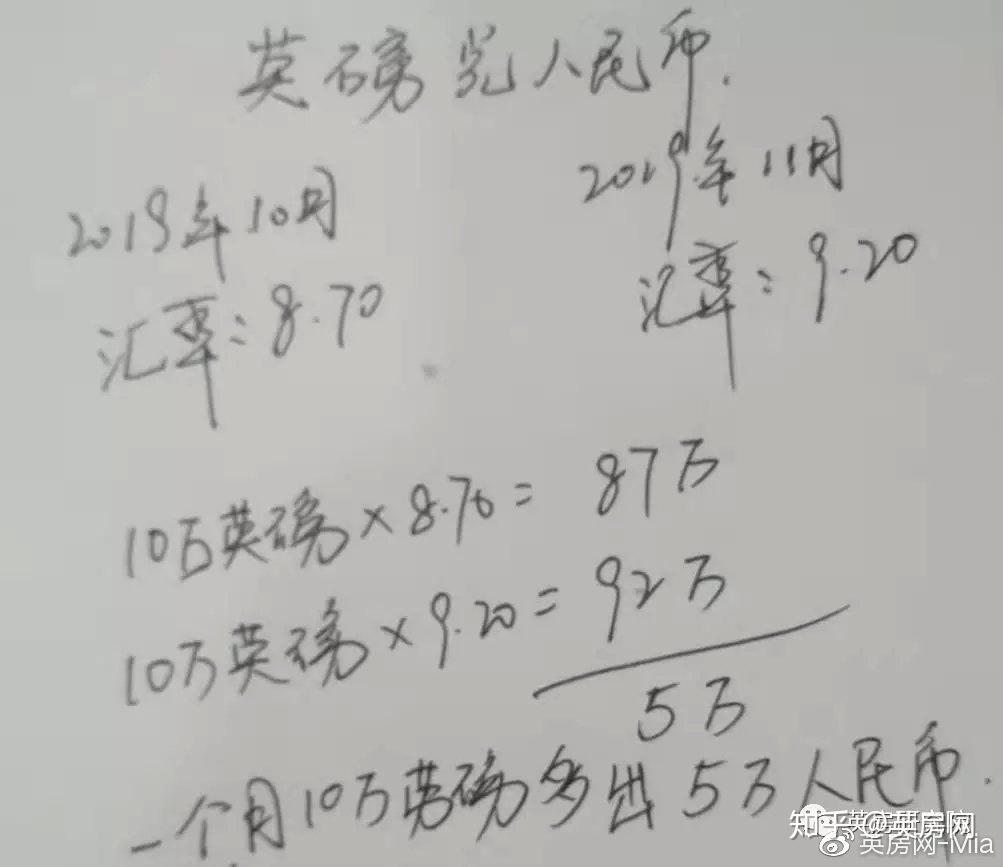 英磅兑人民币.
2019年10月
汇率:8.70
2019年11月
汇率:9.20
10万英磅×8.70=87万
10万英磅×9.20=92万
5万
一个月10万英磅多出5万人民币.
知乎 @英房网
英房网-Mia